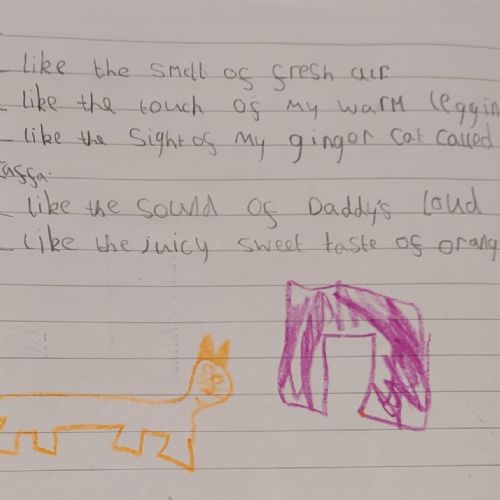 like the smell of fresh air
like the touch of my warm leggin
like the sight of my ginger cat called
affa.
like the sound of Daddy's loud
like the juicy sweet taste of orang